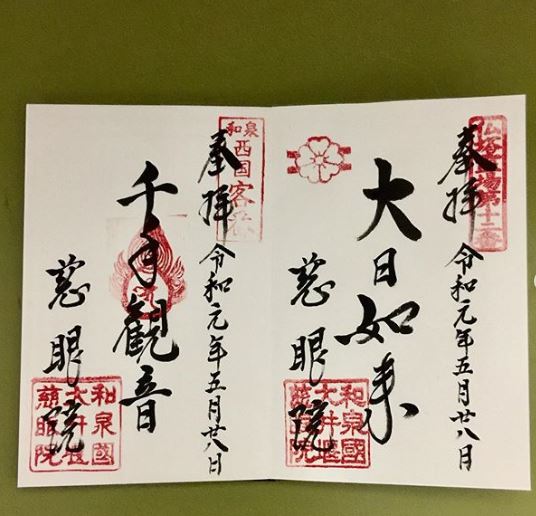 奉拝 令和元年五月廿八日
大日如来
慈眼院
仏塔古寺場第十三番
和泉國
大井堰
慈眼院
奉拝 令和元年五月廿八日
千手観音
慈眼院
和泉
西国
客番
和泉國
大井堰
慈眼院